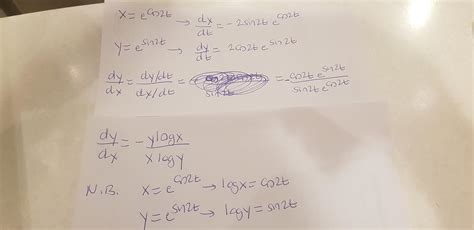 x = e^cos2t → dx/dt = -2sin2t e^cos2t
y = e^sin2t → dy/dt = 2cos2t e^sin2t
dy/dx = dy/dt / dx/dt = = -cos2t e^sin2t / sin2t e^cos2t
dy/dx = - ylogx / xlogy
N.B. x = e^cos2t → logx = cos2t
y = e^sin2t → logy = sin2t